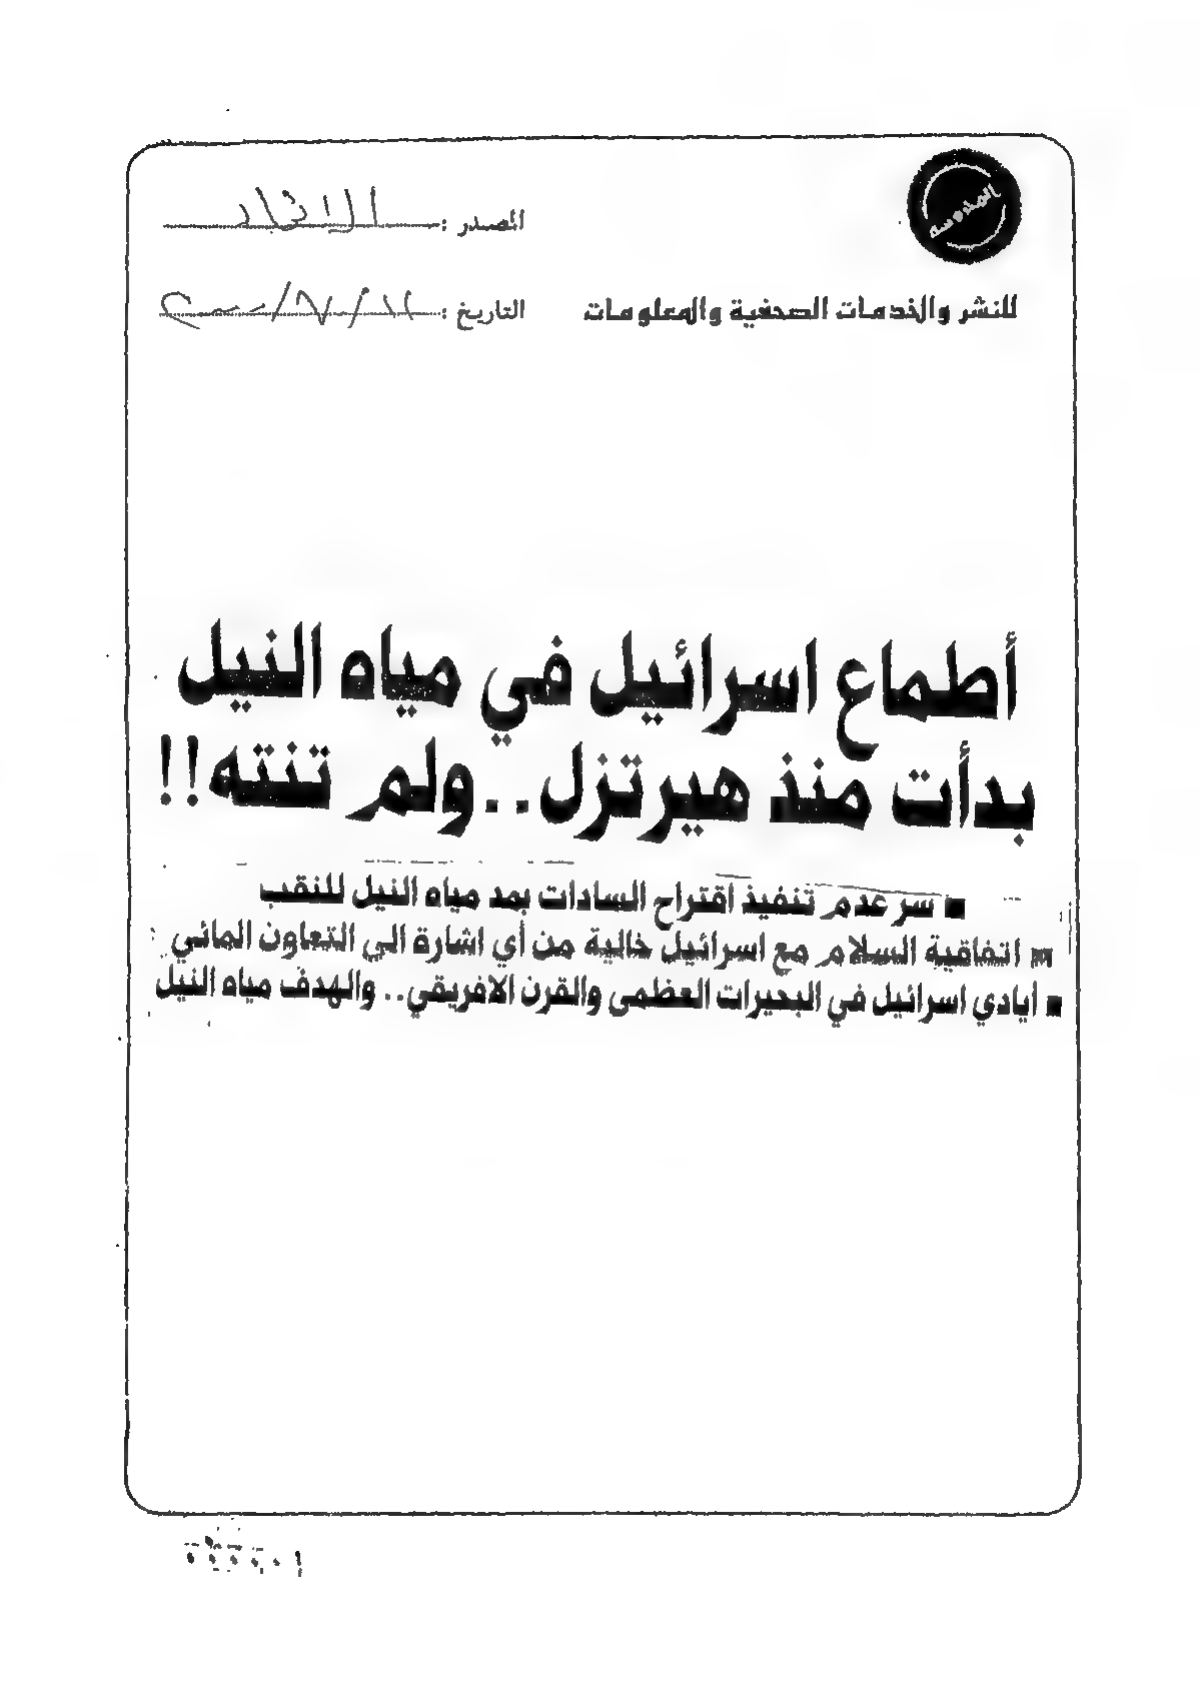 المصدر : الاتحاد
للنشر والخدمات الصحفية والمعلومات
التاريخ :
أطماع اسرائيل في مياه النيل
بدأت منذ هيرتزل..ولم تنته!!
■ سر عدم تنفيذ اقتراح السادات بمد مياه النيل للنقب
■ اتفاقية السلام مع اسرائيل خالية من أي اشارة الى التعاون المائي
■ أيادي اسرائيل في البحيرات العظمى والقرن الافريقي.. والهدف مياه النيل